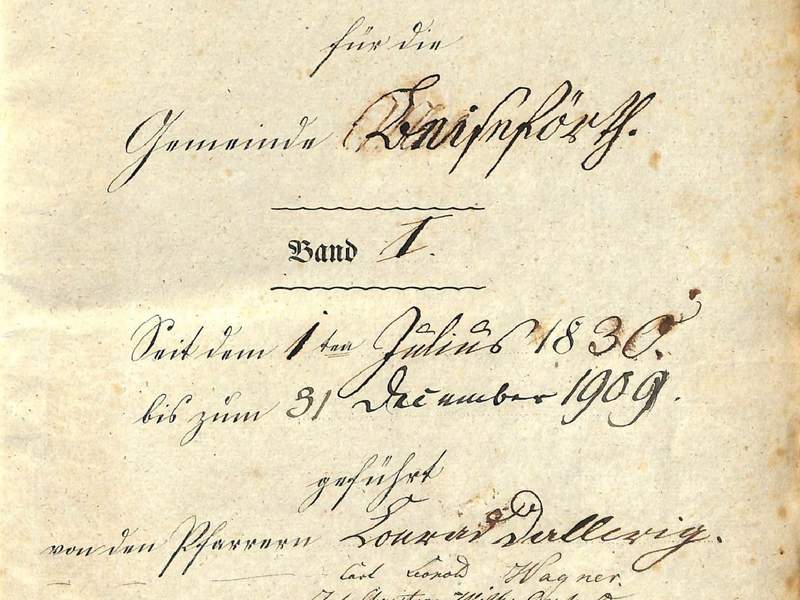 für die
Gemeinde Beiseförth.
Band I.
Seit dem 1ten Julius 1830.
bis zum 31 December 1909.
geführt
von den Pfarrern Conrad Dallwig.
Carl Leopold Wagner.